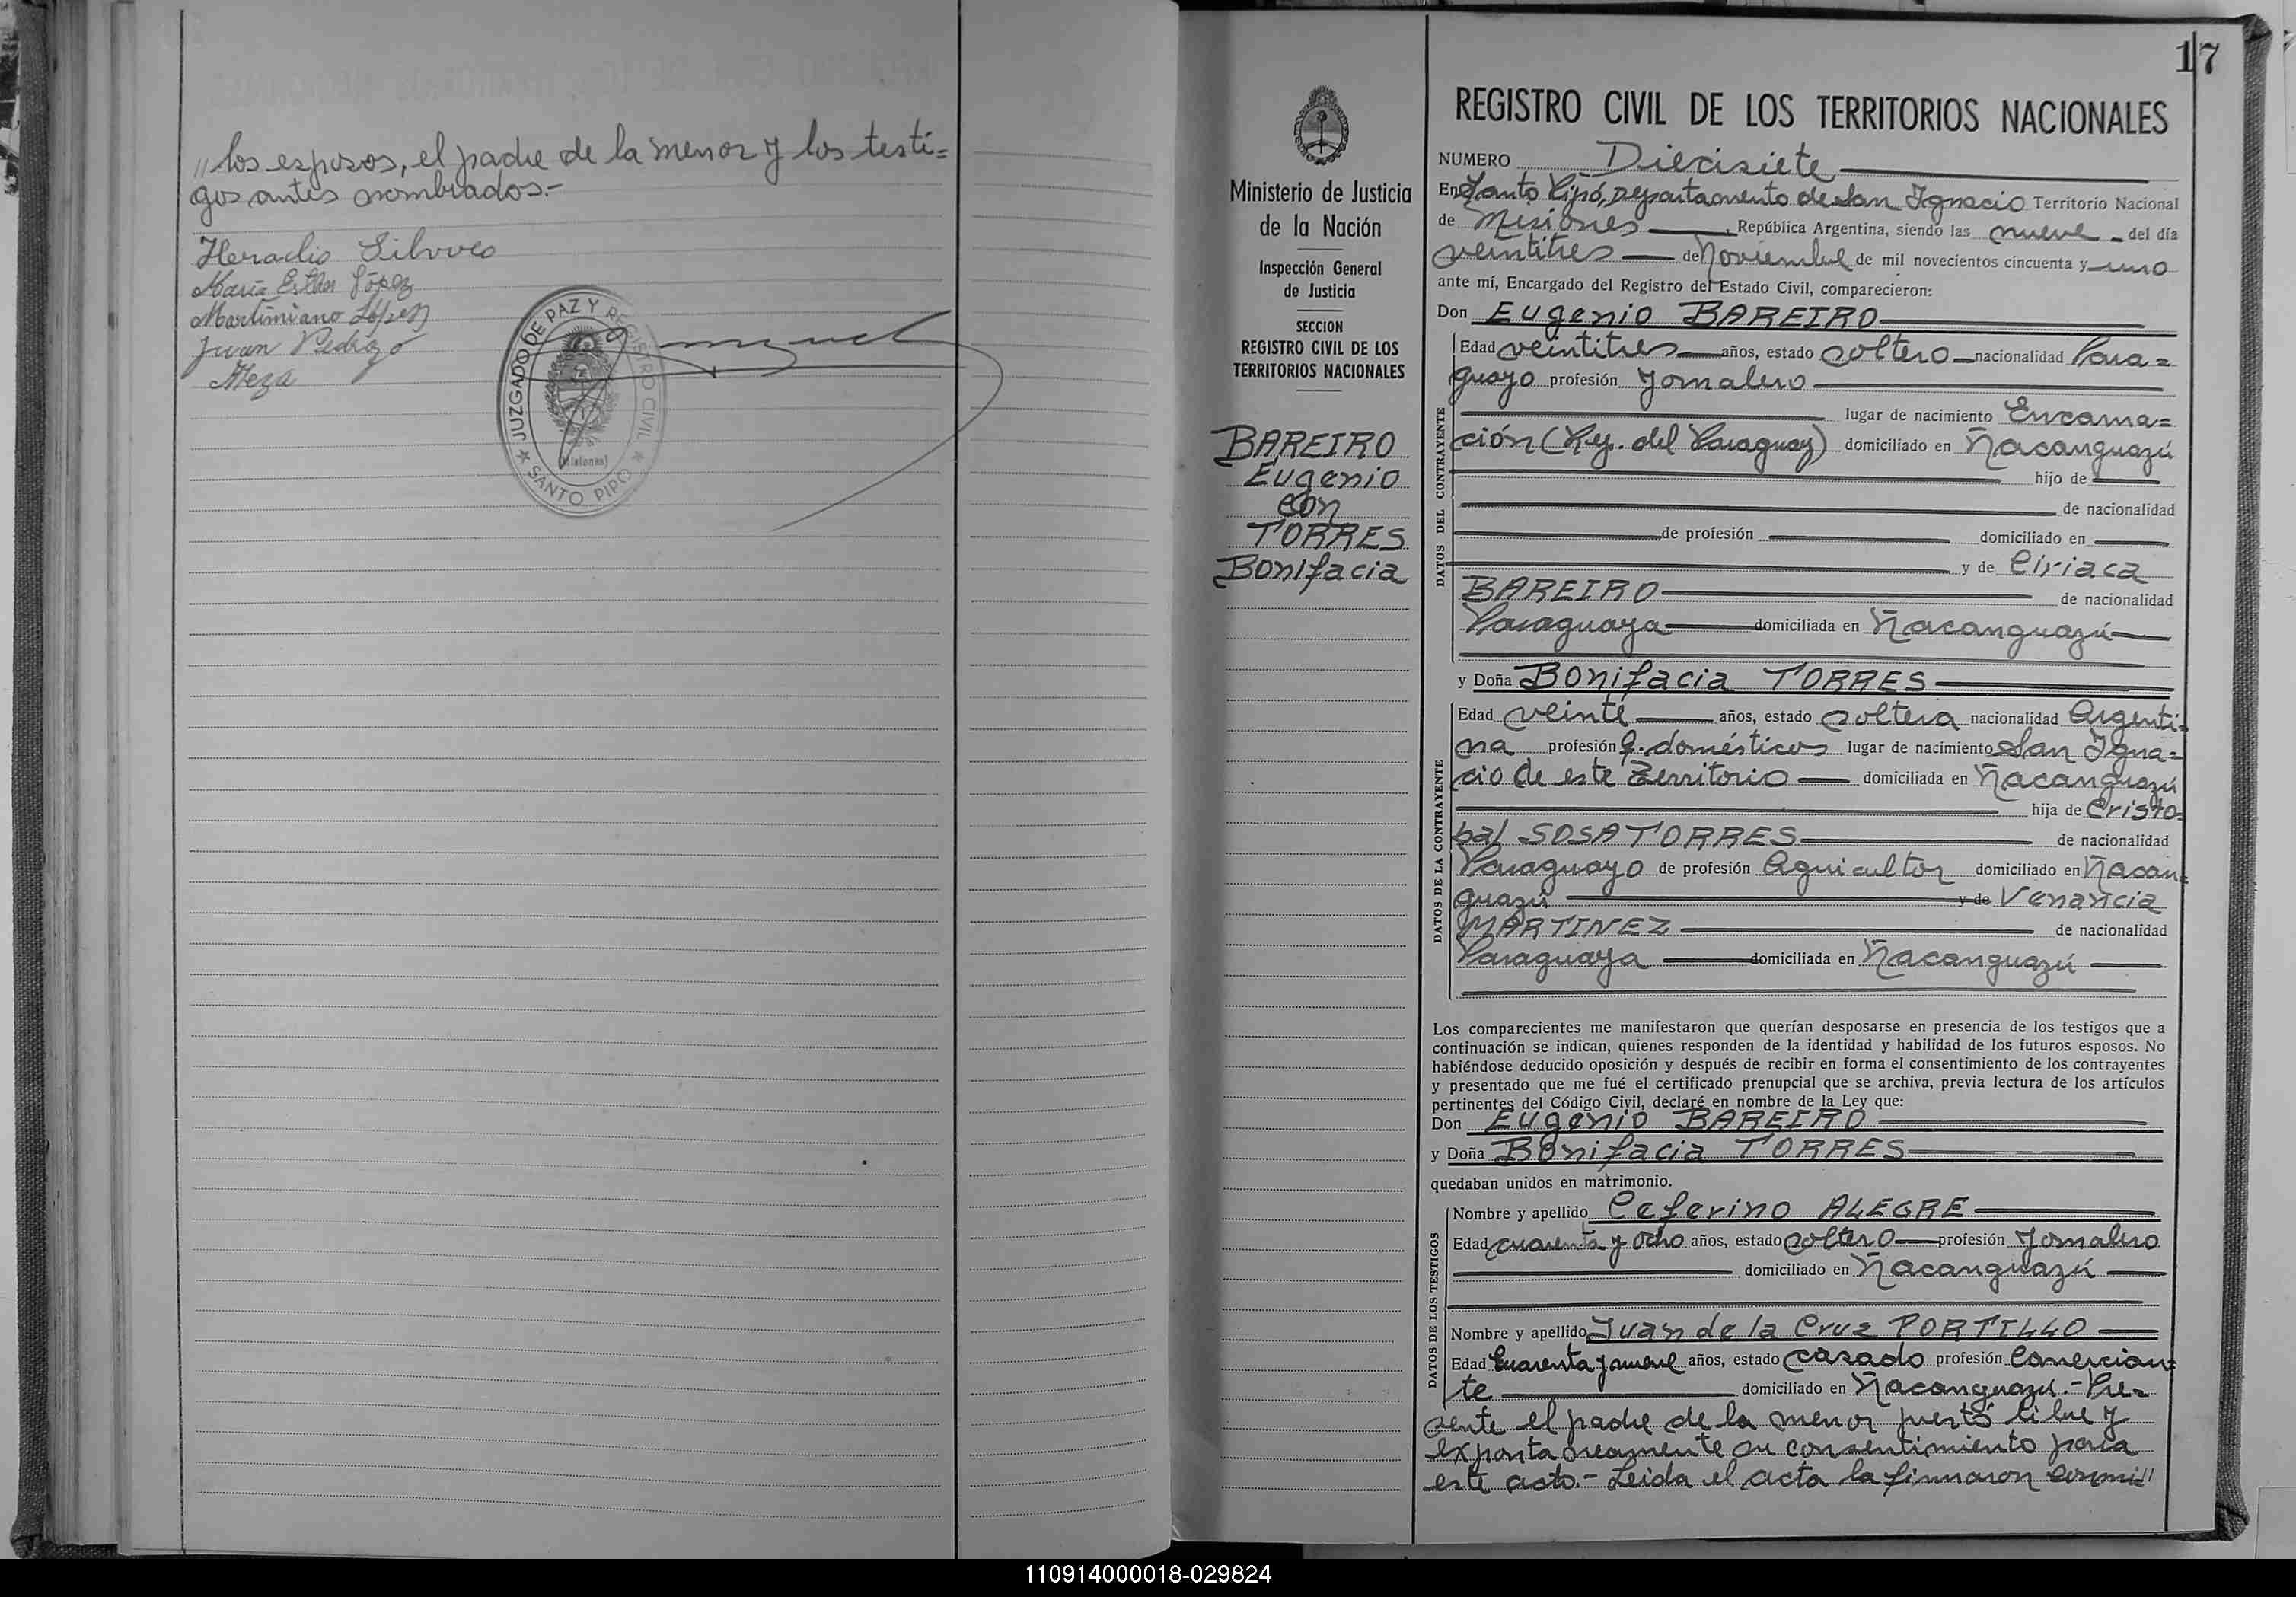 "los esposos, el padre de la menor y los testi=
gos antes nombrados.-
Heraclio
María Esther López
Martimiano López
Juan Pedrozo
Meza
JUZGADO DE PAZ Y REGISTRO CIVIL
(Misiones)
★ SANTO PIPO ★
17
Ministerio de Justicia
de la Nación
Inspección General
de Justicia
SECCION
REGISTRO CIVIL DE LOS
TERRITORIOS NACIONALES
BAREIRO
Eugenio
con
TORRES
Bonifacia
REGISTRO CIVIL DE LOS TERRITORIOS NACIONALES
NUMERO Diecisiete
En Santo Pipó, Departamento de San Ignacio Territorio Nacional
de Misiones, República Argentina, siendo las nueve del día
veintitres de Noviembre de mil novecientos cincuenta y uno
ante mí, Encargado del Registro del Estado Civil, comparecieron:
Don Eugenio BAREIRO
DATOS DEL CONTRAYENTE
Edad veintitres años, estado soltero nacionalidad Para=
guayo profesión Jornalero
lugar de nacimiento Encarna=
ción (Rep. del Paraguay) domiciliado en Ñacanguazú
hijo de
de nacionalidad
de profesión domiciliado en
y de Ciriaca
BAREIRO de nacionalidad
Paraguaya domiciliada en Ñacanguazú
y Doña Bonifacia TORRES
DATOS DE LA CONTRAYENTE
Edad veinte años, estado soltera nacionalidad Argenti=
na profesión q. domésticos lugar de nacimiento San Igna=
cio de este Territorio domiciliada en Ñacanguazú
hija de Cristo=
bal SOSA TORRES de nacionalidad
Paraguayo de profesión Agricultor domiciliado en Ñacan=
guazú y de Venancia
MARTINEZ de nacionalidad
Paraguaya domiciliada en Ñacanguazú
Los comparecientes me manifestaron que querían desposarse en presencia de los testigos que a
continuación se indican, quienes responden de la identidad y habilidad de los futuros esposos. No
habiéndose deducido oposición y después de recibir en forma el consentimiento de los contrayentes
y presentado que me fué el certificado prenupcial que se archiva, previa lectura de los artículos
pertinentes del Código Civil, declaré en nombre de la Ley que:
Don Eugenio BAREIRO
y Doña Bonifacia TORRES
quedaban unidos en matrimonio.
DATOS DE LOS TESTIGOS
Nombre y apellido Ceferino ALEGRE
Edad cuarenta y ocho años, estado soltero profesión Jornalero
domiciliado en Ñacanguazú
Nombre y apellido Juan de la Cruz PORTILLO
Edad Cuarenta y nueve años, estado casado profesión Comercian=
te domiciliado en Ñacanguazú.- Pre=
sente el padre de la menor prestó libre y
expontaneamente su consentimiento para
este acto.- Leida el acta la firmaron conmi"
110914000018-029824